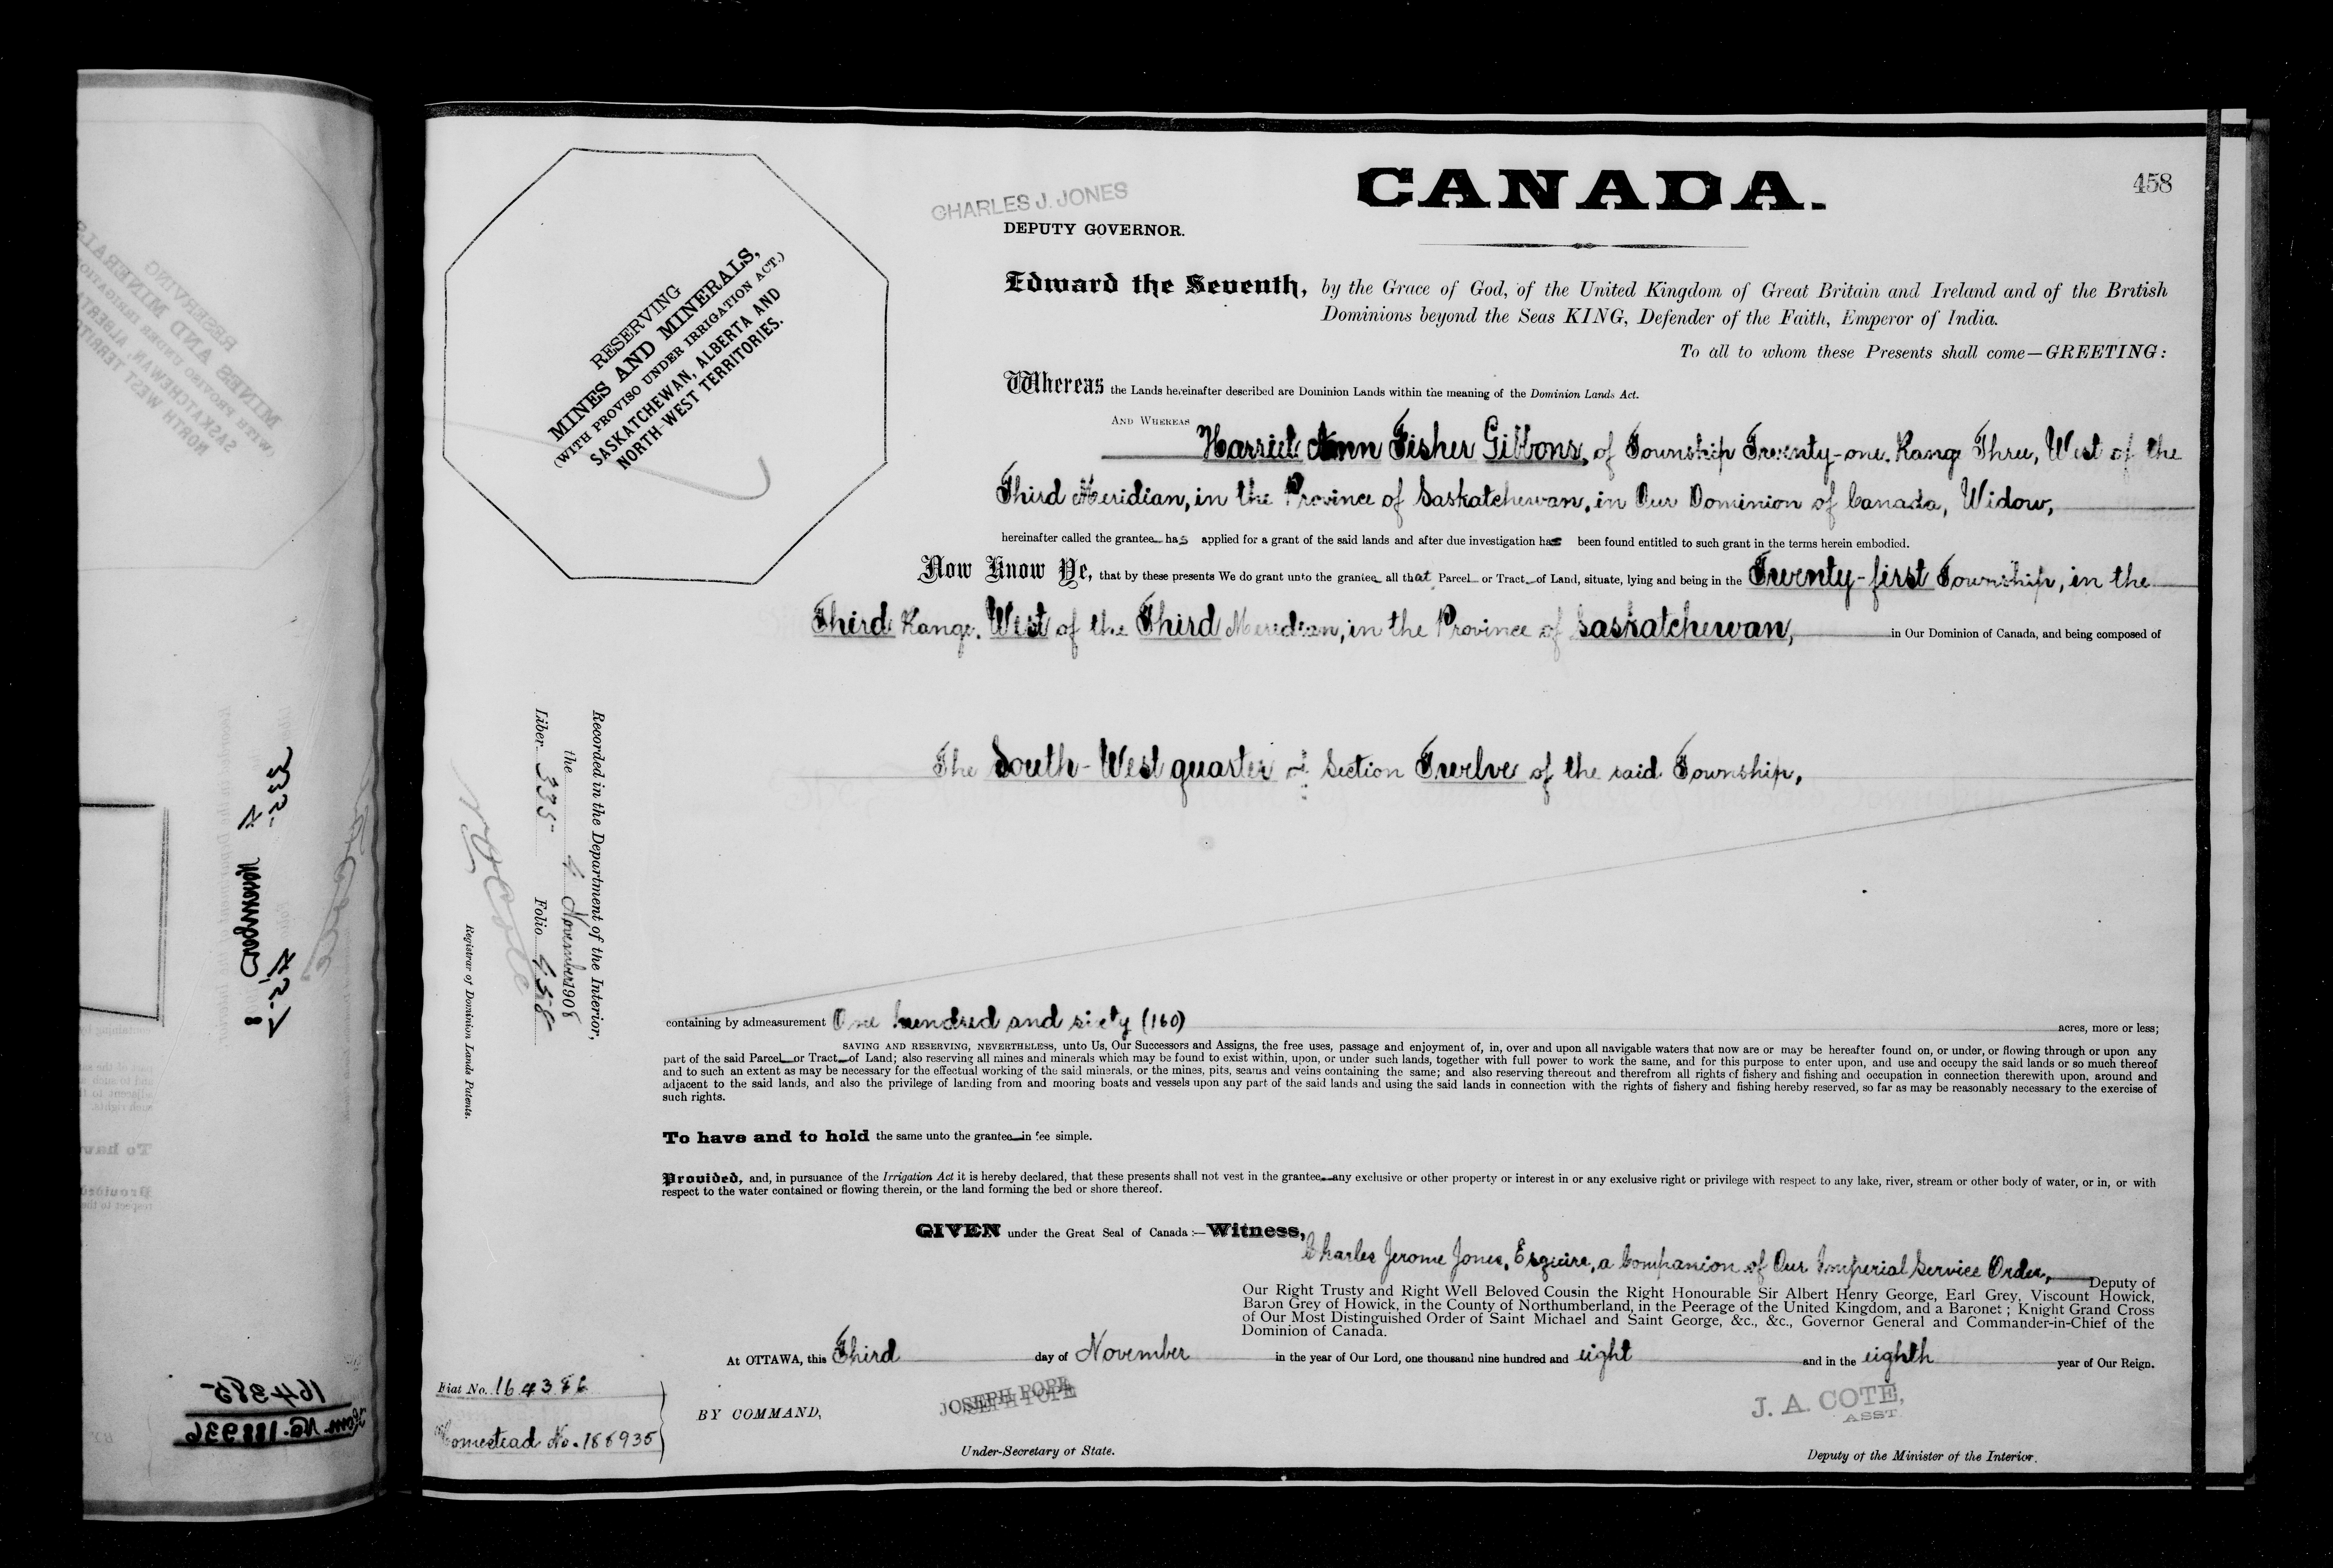 458
CANADA.
CHARLES J. JONES
DEPUTY GOVERNOR.
RESERVING
MINES AND MINERALS,
(WITH PROVISO UNDER IRRIGATION ACT.)
SASKATCHEWAN, ALBERTA AND
NORTH-WEST TERRITORIES.
Edward the Seventh, by the Grace of God, of the United Kingdom of Great Britain and Ireland and of the British
Dominions beyond the Seas KING, Defender of the Faith, Emperor of India.
To all to whom these Presents shall come—GREETING:
Whereas the Lands hereinafter described are Dominion Lands within the meaning of the Dominion Lands Act.
AND WHEREAS Harriet Ann Fisher Gibbons, of Township Twenty-one, Range Three, West of the
Third Meridian, in the Province of Saskatchewan, in Our Dominion of Canada, Widow,
hereinafter called the grantee has applied for a grant of the said lands and after due investigation has been found entitled to such grant in the terms herein embodied.
Now Know Ye, that by these presents We do grant unto the grantee all that Parcel or Tract of Land, situate, lying and being in the Twenty-first Township, in the
Third Range, West of the Third Meridian, in the Province of Saskatchewan, in Our Dominion of Canada, and being composed of
The South-West quarter of Section Twelve of the said Township,
Recorded in the Department of the Interior,
the 4 November 1908
Liber 335 Folio 458
Registrar of Dominion Lands Patents.
containing by admeasurement One hundred and sixty (160) acres, more or less;
SAVING AND RESERVING, NEVERTHELESS, unto Us, Our Successors and Assigns, the free uses, passage and enjoyment of, in, over and upon all navigable waters that now are or may be hereafter found on, or under, or flowing through or upon any
part of the said Parcel or Tract of Land; also reserving all mines and minerals which may be found to exist within, upon, or under such lands, together with full power to work the same, and for this purpose to enter upon, and use and occupy the said lands or so much thereof
and to such an extent as may be necessary for the effectual working of the said minerals, or the mines, pits, seams and veins containing the same; and also reserving thereout and therefrom all rights of fishery and fishing and occupation in connection therewith upon, around and
adjacent to the said lands, and also the privilege of landing from and mooring boats and vessels upon any part of the said lands and using the said lands in connection with the rights of fishery and fishing hereby reserved, so far as may be reasonably necessary to the exercise of
such rights.
To have and to hold the same unto the grantee in fee simple.
Provided, and, in pursuance of the Irrigation Act it is hereby declared, that these presents shall not vest in the grantee any exclusive or other property or interest in or any exclusive right or privilege with respect to any lake, river, stream or other body of water, or in, or with
respect to the water contained or flowing therein, or the land forming the bed or shore thereof.
GIVEN under the Great Seal of Canada:—Witness,
Charles Jerome Jones, Esquire, a Companion of Our Imperial Service Order, Deputy of
Our Right Trusty and Right Well Beloved Cousin the Right Honourable Sir Albert Henry George, Earl Grey, Viscount Howick,
Baron Grey of Howick, in the County of Northumberland, in the Peerage of the United Kingdom, and a Baronet; Knight Grand Cross
of Our Most Distinguished Order of Saint Michael and Saint George, &c., &c., Governor General and Commander-in-Chief of the
Dominion of Canada.
At OTTAWA, this Third day of November in the year of Our Lord, one thousand nine hundred and eight and in the eighth year of Our Reign.
Fiat No. 164386
Homestead No. 188935
BY COMMAND,
JOSEPH POPE
Under-Secretary of State.
J. A. COTE,
ASST
Deputy of the Minister of the Interior.